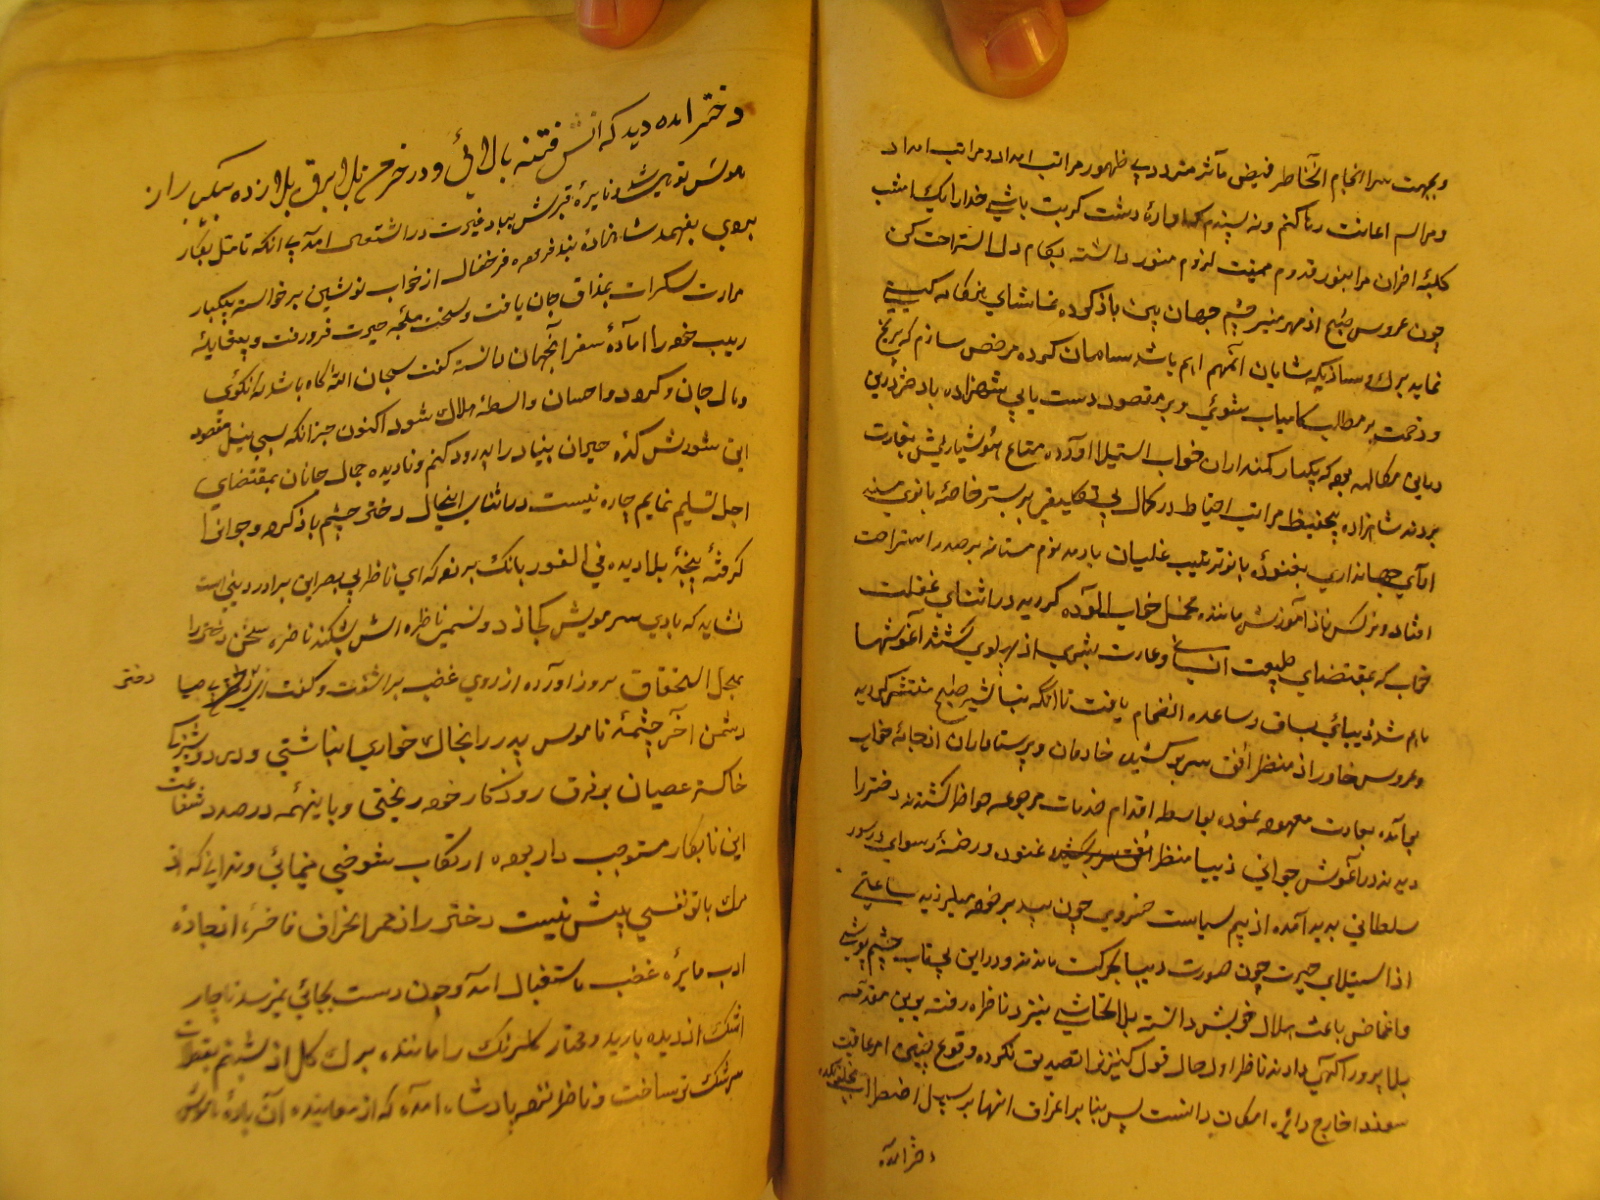 و بجهت سرانجام آنخاطر فیض مآثر متردد بی ظهور مراتب امداد و مراتب امداد
و مراسم اعانت رها کنم و نه پسندم که آوارهٔ دشت کربت باشی خدا را یک امشب
کلبهٔ احزان مرا بنور قدوم میمنت لزوم منور داشته بکام دل استراحت کن
چون عروس صبح از مهر منیر چشم جهان بین باز کرده تماشای بزمگاه گیتی
نماید برک و سازیکه شایان اتمهم باشد سامان کرده مرخص سازم که بر نهج
و رخصت بر مطالب کامیاب شوی و بر مقصود دست یابی شاهزاده باد خزادرین
درین مکالمه بود که یکبار کمنداران خواب استیلا آورده متاع هوشیاریش بغارت
بردند شاهزاده بحفیظ مراتب احتیاط در کمال بی تکلیفی بر بستر خاصهٔ بانوی مسند
آرای جهانداری بغنود بانو ترتیب غلیان باده نوم مستانه بر صدر استراحت
افتاد و نرکس ناز آموزش مانند مخمل خواب آلوده کردید در اثنای غفلت
خواب که بمقتضای طبیعت انسانی و عادت بشری از پهلوی کشند آغوشها
باهم شد زیبائی بساق و ساعده انضمام یافت تا آنکه تباشیر صبح منتشر کردید
و عروس خاور از منظر افق سر بر کشید خادمان و پرستاران از جامهٔ خواب
بر آمده بعادت معهود نموده بواسطه اقدام خدمات مرجوعه حواظر کشتند دختر را
دیدند در آغوش جوانی زیبا منظر غنوده و رخنهٔ رسوای در سور
سلطانی پدید آمده از بیم سیاست خسروی چون بید بر خود میلرزید ساعتی
از استیلای حیرت چون صورت دیبا بیحرکت ماندند و در این بی تاب چشم پوشی
و اغماض باعث هلاک خویش دانسته بلا تحاشی نیزد ناظر رفته بوین مقدمه
بلا پرور آکهی دادند ناظر اول حال قول کنیزنرا تصدیق نکرده وقوع چنین امر عاقبت
سوز از خارج دائره امکان دانست پس بنابر اعتراف انها بر سبیل اضطراب
دختر آمده
دختر آمده دید که آتش فتنه بالائی و در خرمن بل ابرق بلا زده سیکب ران
ناموس تو پرشد و نایرهٔ قهرش بباد غیرت در اشتعال آمد بی آنکه تامل بکار
بروی بفهمد شاهزاده بند فرموده فرخفال از خواب نوشین برخواسته بیکبار
مرارت سکرات بمذاق جان یافت و سخت ملجمه حیرت فرو رفت و بیوفایله
ریب خود را آمادهٔ سفر آنجهان دانسته کفت سبحان الله کاه باشد که نکوئی
وبال جان کرود و احسان واسطهٔ هلاک شود اکنون جز آنکه بی نیل مقصود
این شورش کدهٔ حیران بنیاد را پدرود کنم و نادیده جمال جانان بمقتضای
اجل تسلیم نمایم چاره نیست در اثنای اینحال دختر چشم باز کرد و جوانرا
کرفتهٔ پنجهٔ بلا دیده فی الفور بانک بر زد که ای ناظر بی بصر این برادر دینی است
نشاید که بادی سر مویش کج از د و نسیمی ناظره اش بشکند ناظر سخن دختر را
بمحل استحقاق بروز آورده از روی غضب بر اشفت و کفت ای حیا
دختر
دشمن آخر چشمهٔ ناموس پدر را بخاک خواری انباشتی و در دو شیزکی
خاکستر عصیان بر فرق روزکار خود ریختی و با اینهمه در صدد شفاعت
این نابکار مستوجب دار بوده ارتکاب شوخی مینمائی و ندانی که از
مرک با تو نفسی پیش نیست دختر را از ممر انحراف ناظر از جادهٔ
ادب نایره غضب باستقبال آمد و چون دست بجائی نمیرسد ناچار
اشک از دیده بارید و عذار کلرنک را مانند برک کل از شبنم بقطرات
سرشک تر ساخت و ناظر نزد پادشاه آمد که از معاینه آن مادهٔ ناموس